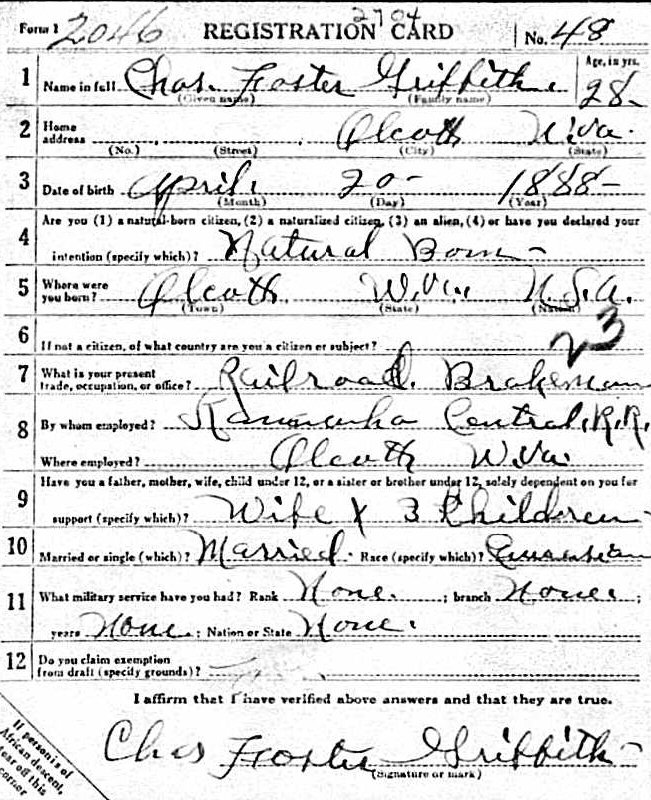 2704
Form 1 2046 REGISTRATION CARD No. 48
1 Name in full Chas. Foster Griffith. Age, in yrs. 28
(Given name) (Family name)
2 Home address Olcott W.Va.
(No.) (Street) (City) (State)
3 Date of birth April 20 - 1888 -
(Month) (Day) (Year)
4 Are you (1) a natural-born citizen, (2) a naturalized citizen, (3) an alien, (4) or have you declared your
intention (specify which)? Natural Born -
5 Where were you born? Olcott W.Va. U.S.A.
(Town) (State) (Nation)
6 If not a citizen, of what country are you a citizen or subject?
23
7 What is your present trade, occupation, or office? Railroad Brakeman
8 By whom employed? Kanawha Central R.R.
Where employed? Olcott W.Va.
9 Have you a father, mother, wife, child under 12, or a sister or brother under 12, solely dependent on you for
support (specify which)? Wife & 3 Children
10 Married or single (which)? Married. Race (specify which)?
11 What military service have you had? Rank None. ; branch None. ;
years None. ; Nation or State None.
12 Do you claim exemption from draft (specify grounds)?
I affirm that I have verified above answers and that they are true.
Chas Foster Griffith -
(Signature or mark)
If person is of
African descent,
tear off this
corner